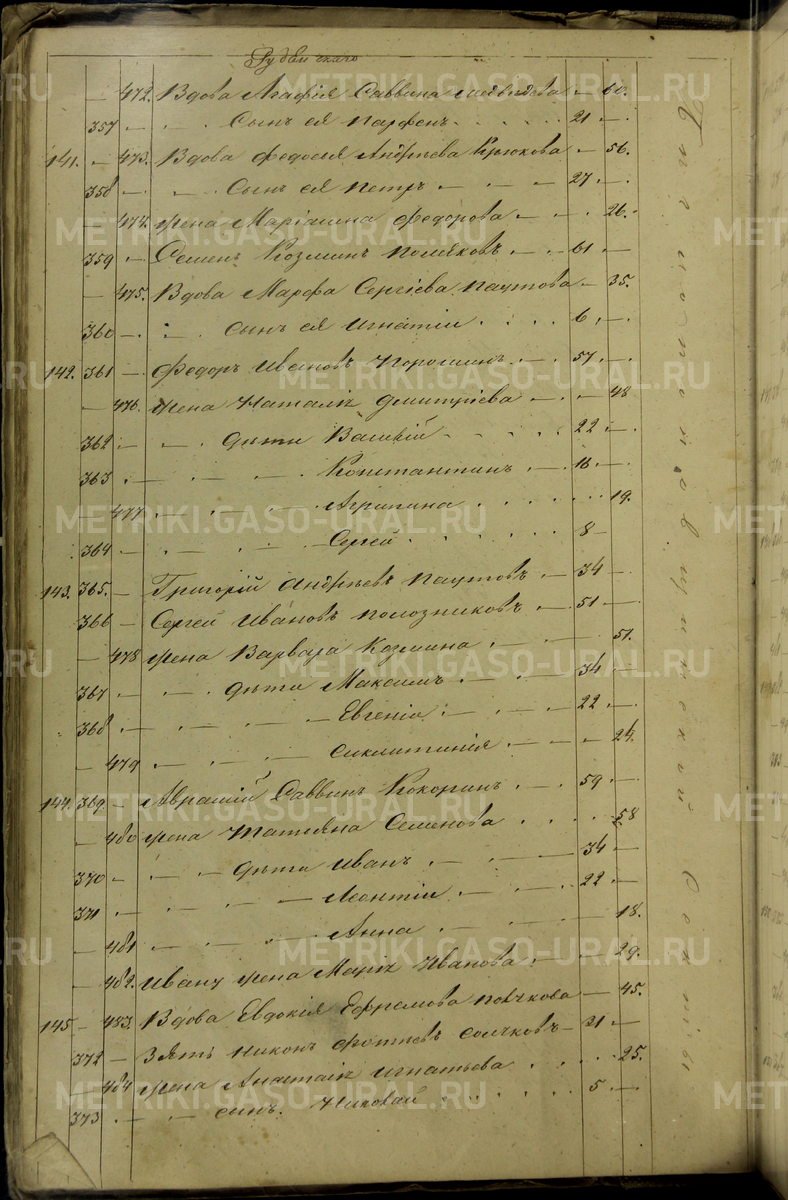 472. Вдова Агафія Саввина Медвидева — 60.
357 — Сынъ ея Парфенъ 21 —
141. — 473. Вдова Федосья Андрѣева Крюкова — 56.
358 — Сынъ ея Петръ — 27 —
— 474. жена Маріамна Федорова — 26.
359 — Семенъ Козминъ Поляковъ — 61 —
— 475. Вдова Марфа Сергіева Паутова — 35.
360 — сынъ ея Игнатій 6 —
142. 361 — Федоръ Ивановъ Порошинъ 57. —
— 476. жена Наталія Дмитріева — 48
362 — дѣти Василій 22 —
363 — Константинъ — 16 —
— 477 Агрипина 19.
364 — Сергей 8 —
143. 365. — Григорій Андрѣевъ Паутовъ — 34 —
366 — Сергей Ивановъ Полозниковъ — 51 —
— 478 жена Варвара Козмина 51.
367 — дѣти Максимъ — 34 —
368 — Евгеній 22 —
— 479 Сиклитинія — 24.
144. 369. — Аврамій Саввинъ Кокоринъ 59 —
— 480 жена Татіяна Семенова 58
370 — дѣти Иванъ 34 —
371 — Леонтій 22 —
— 481 Анна 18.
— 482. Ивану жена Марія Иванова 29.
145 — 483. Вдова Евдокія Ефремова — 45.
372 — Зять Никонъ Фотіевъ — 31 —
— 484 жена Анастасія Игнатьева 25.
373 — сынъ Николай 5 —
METRIKI.GASO-URAL.RU